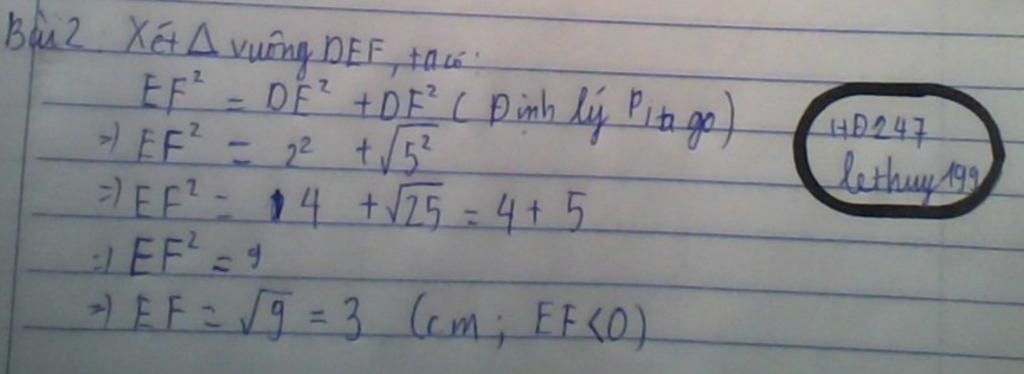 Bài 2. Xét Δ vuông DEF, ta có:
EF² = DE² + DF² (Định lý Pitago)
=> EF² = 2² + √5²
=> EF² = 4 + √25 = 4 + 5
=> EF² = 9
=> EF = √9 = 3 (cm; EF<0)
HD247
lethuy199